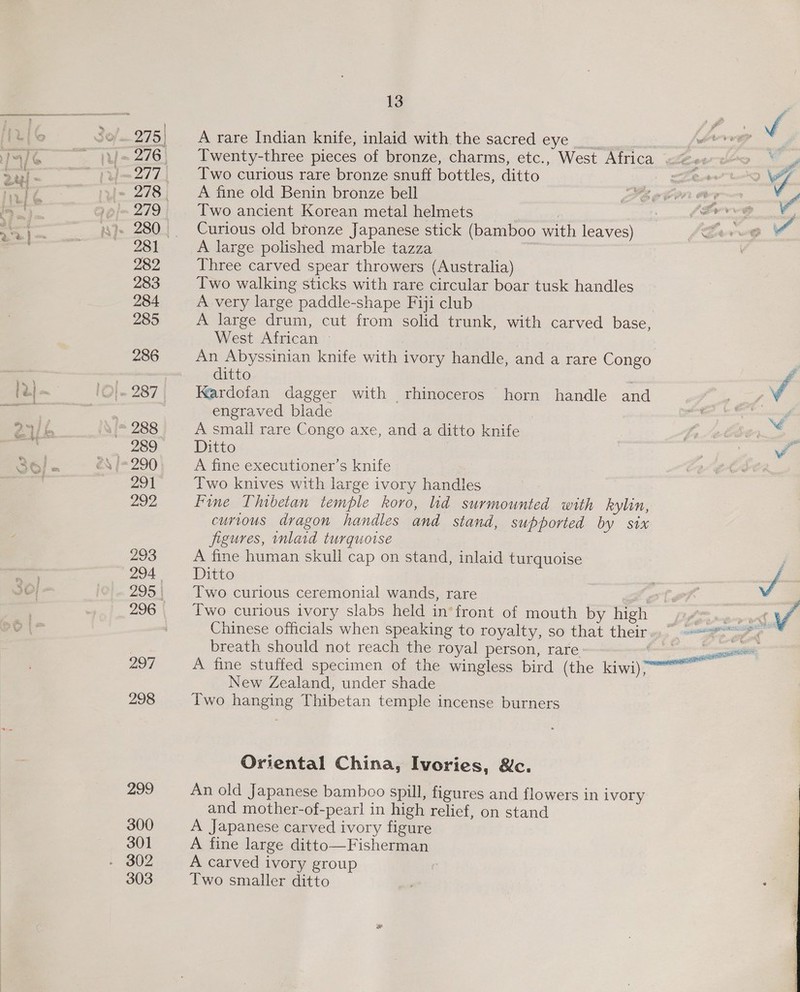 13
275 A rare Indian knife, inlaid with the sacred eye
276 Twenty-three pieces of bronze, charms, etc., West Africa
277 Two curious rare bronze snuff bottles, ditto
278 A fine old Benin bronze bell
279 Two ancient Korean metal helmets
280 Curious old bronze Japanese stick (bamboo with leaves)
281 A large polished marble tazza
282 Three carved spear throwers (Australia)
283 Two walking sticks with rare circular boar tusk handles
284 A very large paddle-shape Fiji club
285 A large drum, cut from solid trunk, with carved base,
West African
286 An Abyssinian knife with ivory handle, and a rare Congo
ditto
287 Kardofan dagger with rhinoceros horn handle and
engraved blade
288 A small rare Congo axe, and a ditto knife
289 Ditto
290 A fine executioner's knife
291 Two knives with large ivory handles
292 Fine Thibetan temple koro, lid surmounted with kylin,
curious dragon handles and stand, supported by six
figures, inlaid turquoise
293 A fine human skull cap on stand, inlaid turquoise
294 Ditto
295 Two curious ceremonial wands, rare
296 Two curious ivory slabs held in front of mouth by high
Chinese officials when speaking to royalty, so that their
breath should not reach the royal person, rare
297 A fine stuffed specimen of the wingless bird (the kiwi),
New Zealand, under shade
298 Two hanging Thibetan temple incense burners
Oriental China, Ivories, &c.
299 An old Japanese bamboo spill, figures and flowers in ivory
and mother-of-pearl in high relief, on stand
300 A Japanese carved ivory figure
301 A fine large ditto—Fisherman
302 A carved ivory group
303 Two smaller ditto